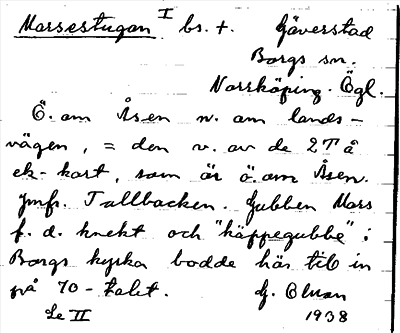 Marsestugan I bs. †. Gäverstad
Borgs sn.
Norrköping. Ögl.
Ö. om Åsen n. om lands-
vägen, = den v. av de 2 T å
ek-kart, som är ö. om Åsen.
Jmfr. Tallbacken. Gubben Mars
f. d. knekt och "käppegubbe" i
Borgs kyrka bodde här till in
på 70-talet. G. Elman
Le II 1938